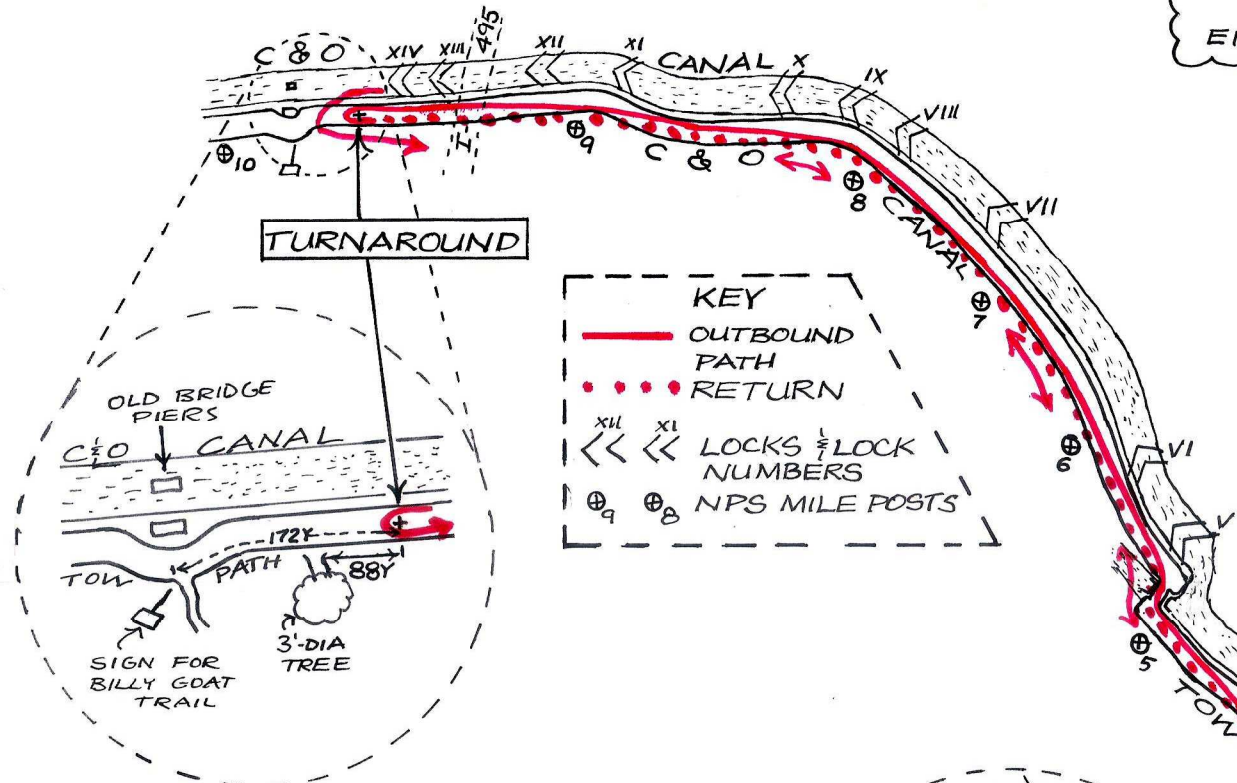 C & O
XIV
XIII
I 495
XII
XI
CANAL
X
IX
VIII
VII
VI
V
10
9
C & O
8
CANAL
7
6
5
TOW
TURNAROUND
KEY
OUTBOUND
PATH
RETURN
XII XI
LOCKS & LOCK
NUMBERS
9 8 NPS MILE POSTS
OLD BRIDGE
PIERS
C & O CANAL
172Y
TOW PATH 88Y
SIGN FOR
BILLY GOAT
TRAIL
3'-DIA
TREE